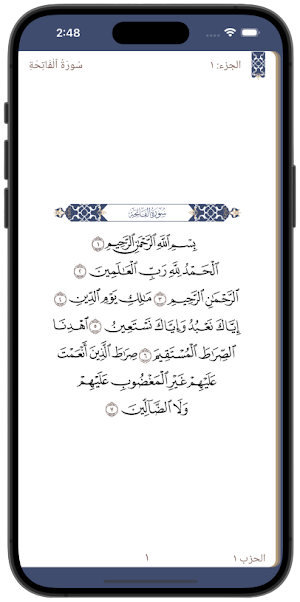 2:48
سُورَةُ ٱلْفَاتِحَةِ
الجزء: ١
سُورَةُ الفَاتِحَةِ
بِسْمِ ٱللَّهِ ٱلرَّحْمَٰنِ ٱلرَّحِيمِ ١
ٱلْحَمْدُ لِلَّهِ رَبِّ ٱلْعَٰلَمِينَ ٢
ٱلرَّحْمَٰنِ ٱلرَّحِيمِ ٣ مَٰلِكِ يَوْمِ ٱلدِّينِ ٤
إِيَّاكَ نَعْبُدُ وَإِيَّاكَ نَسْتَعِينُ ٥ ٱهْدِنَا
ٱلصِّرَٰطَ ٱلْمُسْتَقِيمَ ٦ صِرَٰطَ ٱلَّذِينَ أَنْعَمْتَ
عَلَيْهِمْ غَيْرِ ٱلْمَغْضُوبِ عَلَيْهِمْ
وَلَا ٱلضَّآلِّينَ ٧
١
الحزب ١